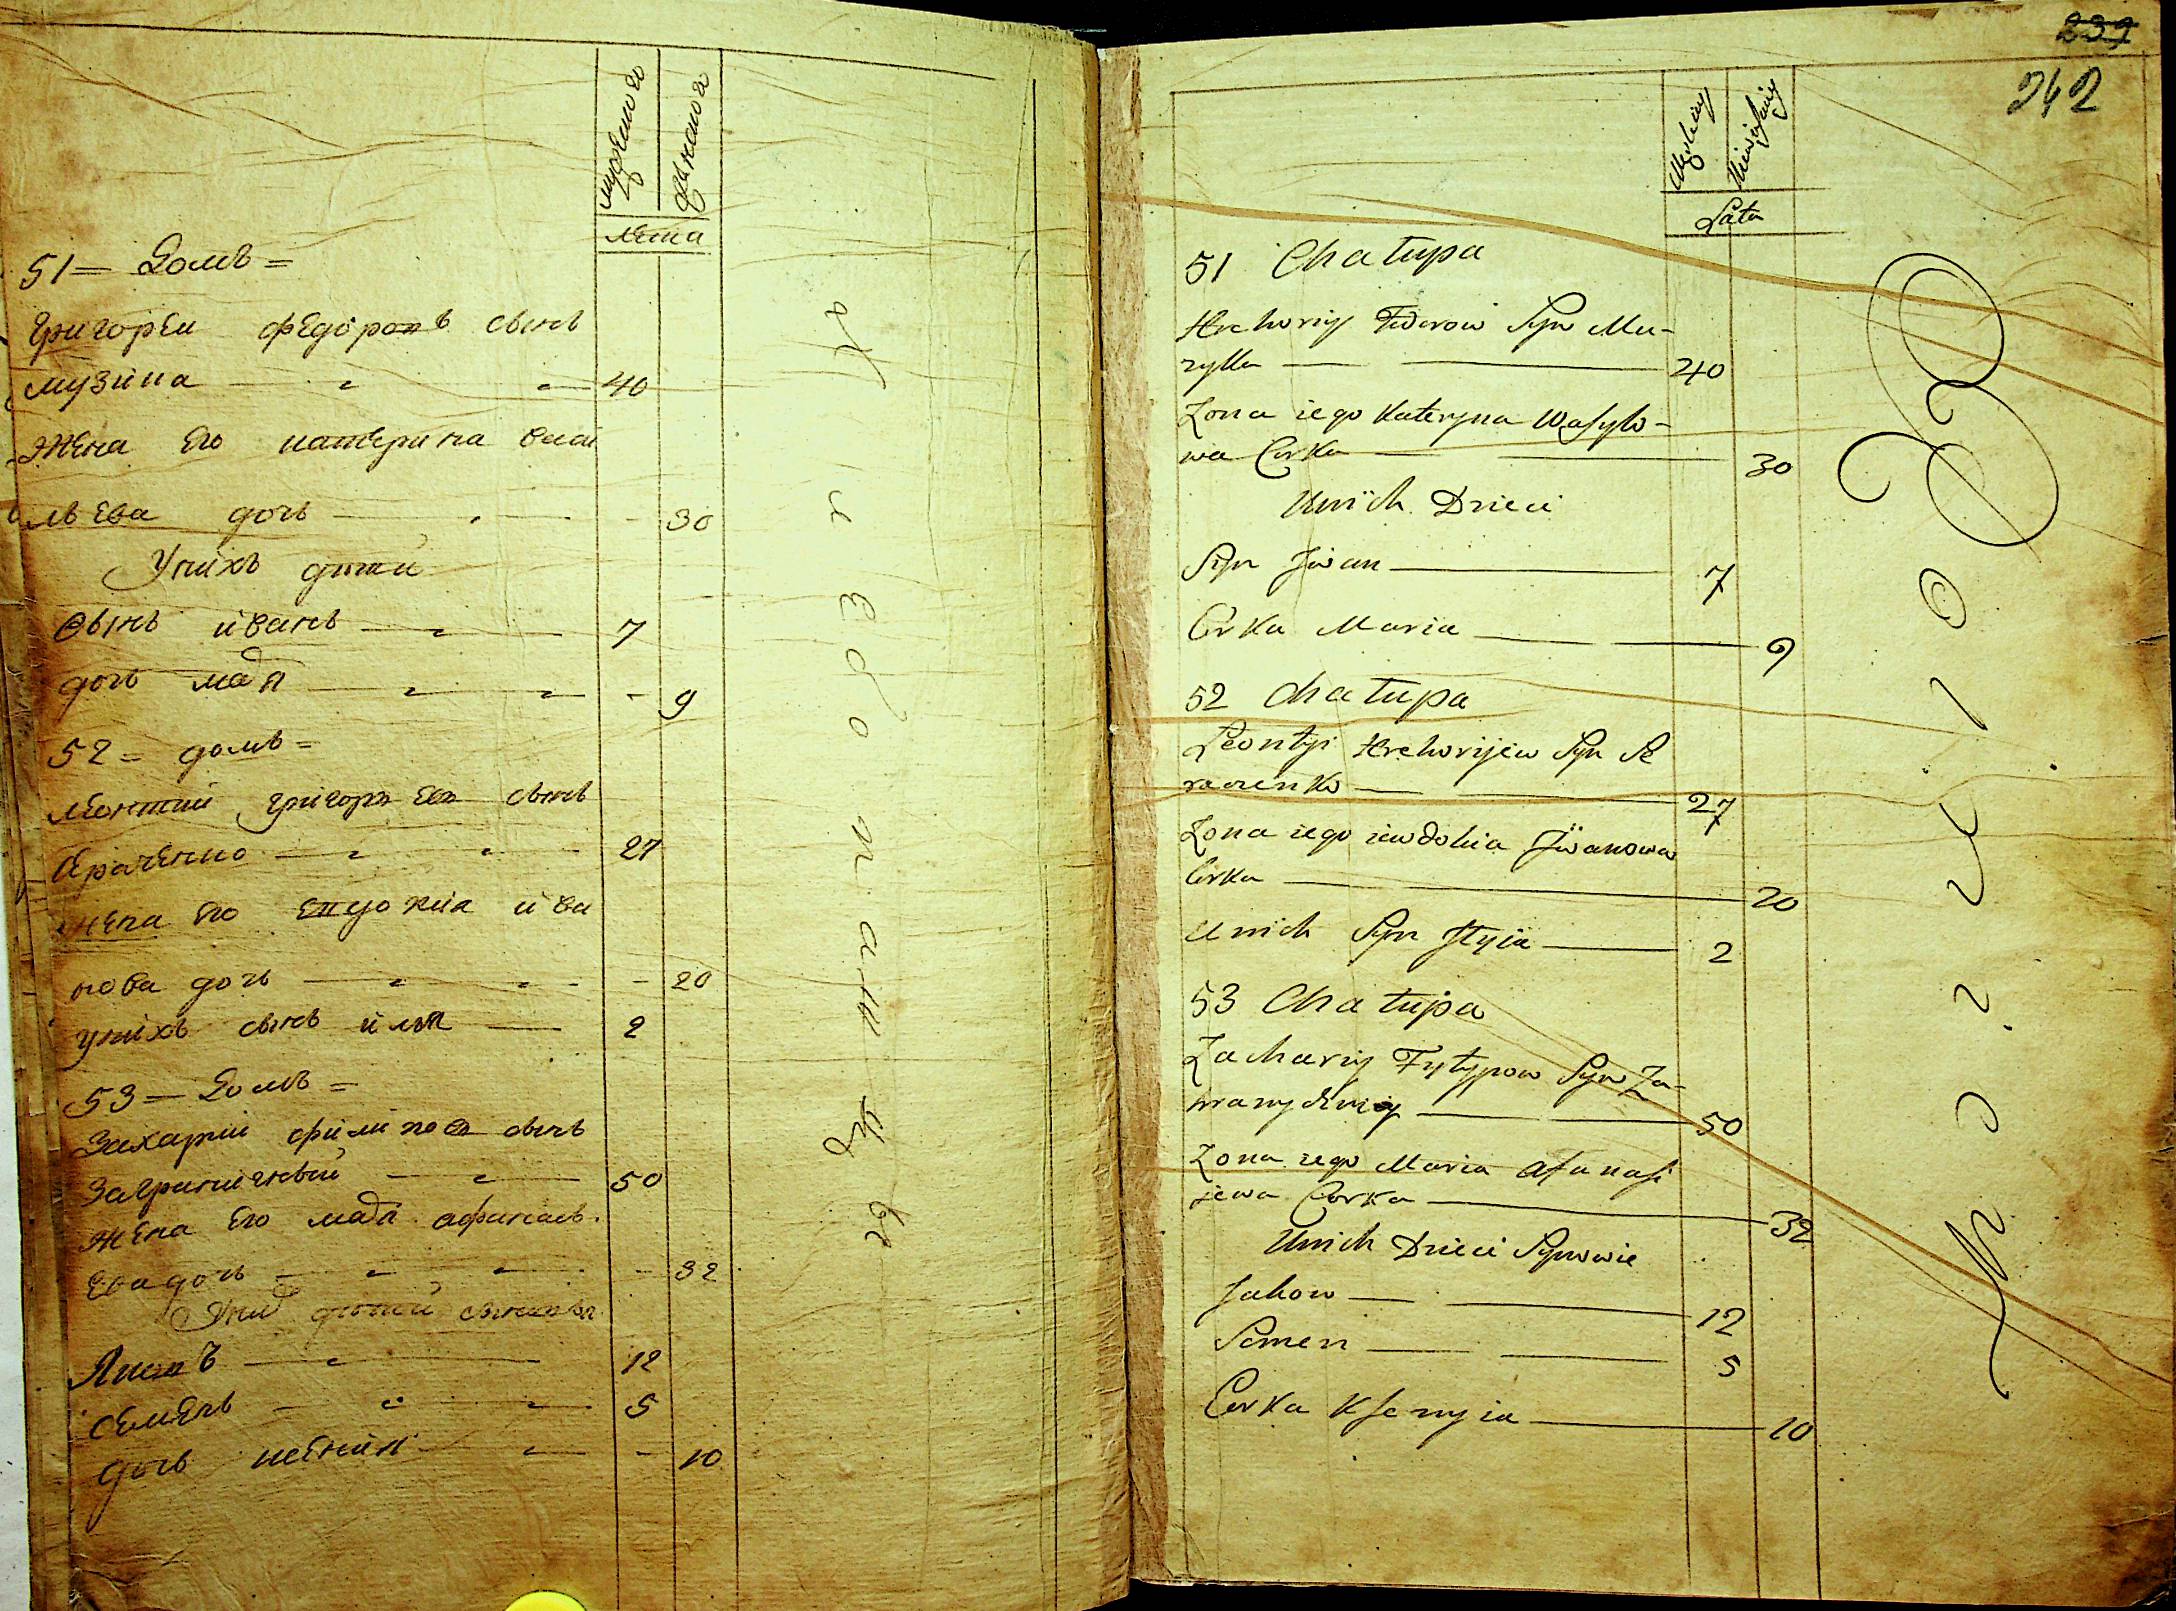 мужеска
женска
лета
51 = Домъ =
Григореи федоровъ сынъ
музика 40
Жена его катерина васи
льева дочь 30
У нихъ дѣтей
Сынъ иванъ 7
дочь маря 9
52 = домъ =
леонтий григорьевъ сынъ
50
жена его евдокиа ива
нова дочь 20
у нихъ сынъ илья 2
53 = Домъ =
Захарий филиповъ сынъ
Заграничный 50
Жена его маря афанась
ева дочь 32
дѣтей сыновья
Яковъ 12
семенъ 5
дочь ксения 10
237
242
Męskiey
Niewieściey
Lata
51 Chatupa
Hrehoriy Fedorow Syn Mu-
zyka 40
Zona iego Kateryna Wasylo-
wa Corka 30
Unich Dzieci
Syn Jwan 7
Corka Maria 9
52 Chatupa
Leontyi Hrehorijew Syn Se
raczenko 27
Zona iego iewdokia Jwanowa
Corka 20
Unich Syn Jlyia 2
53 Chatupa
Zachariy Fylypow Syn Za-
hranyczniy 50
Zona iego Maria Afanasi
jewa Corka 32
Unich Dzieci Synowie
Jakow 12
Semen 5
Corka Ksenyia 10